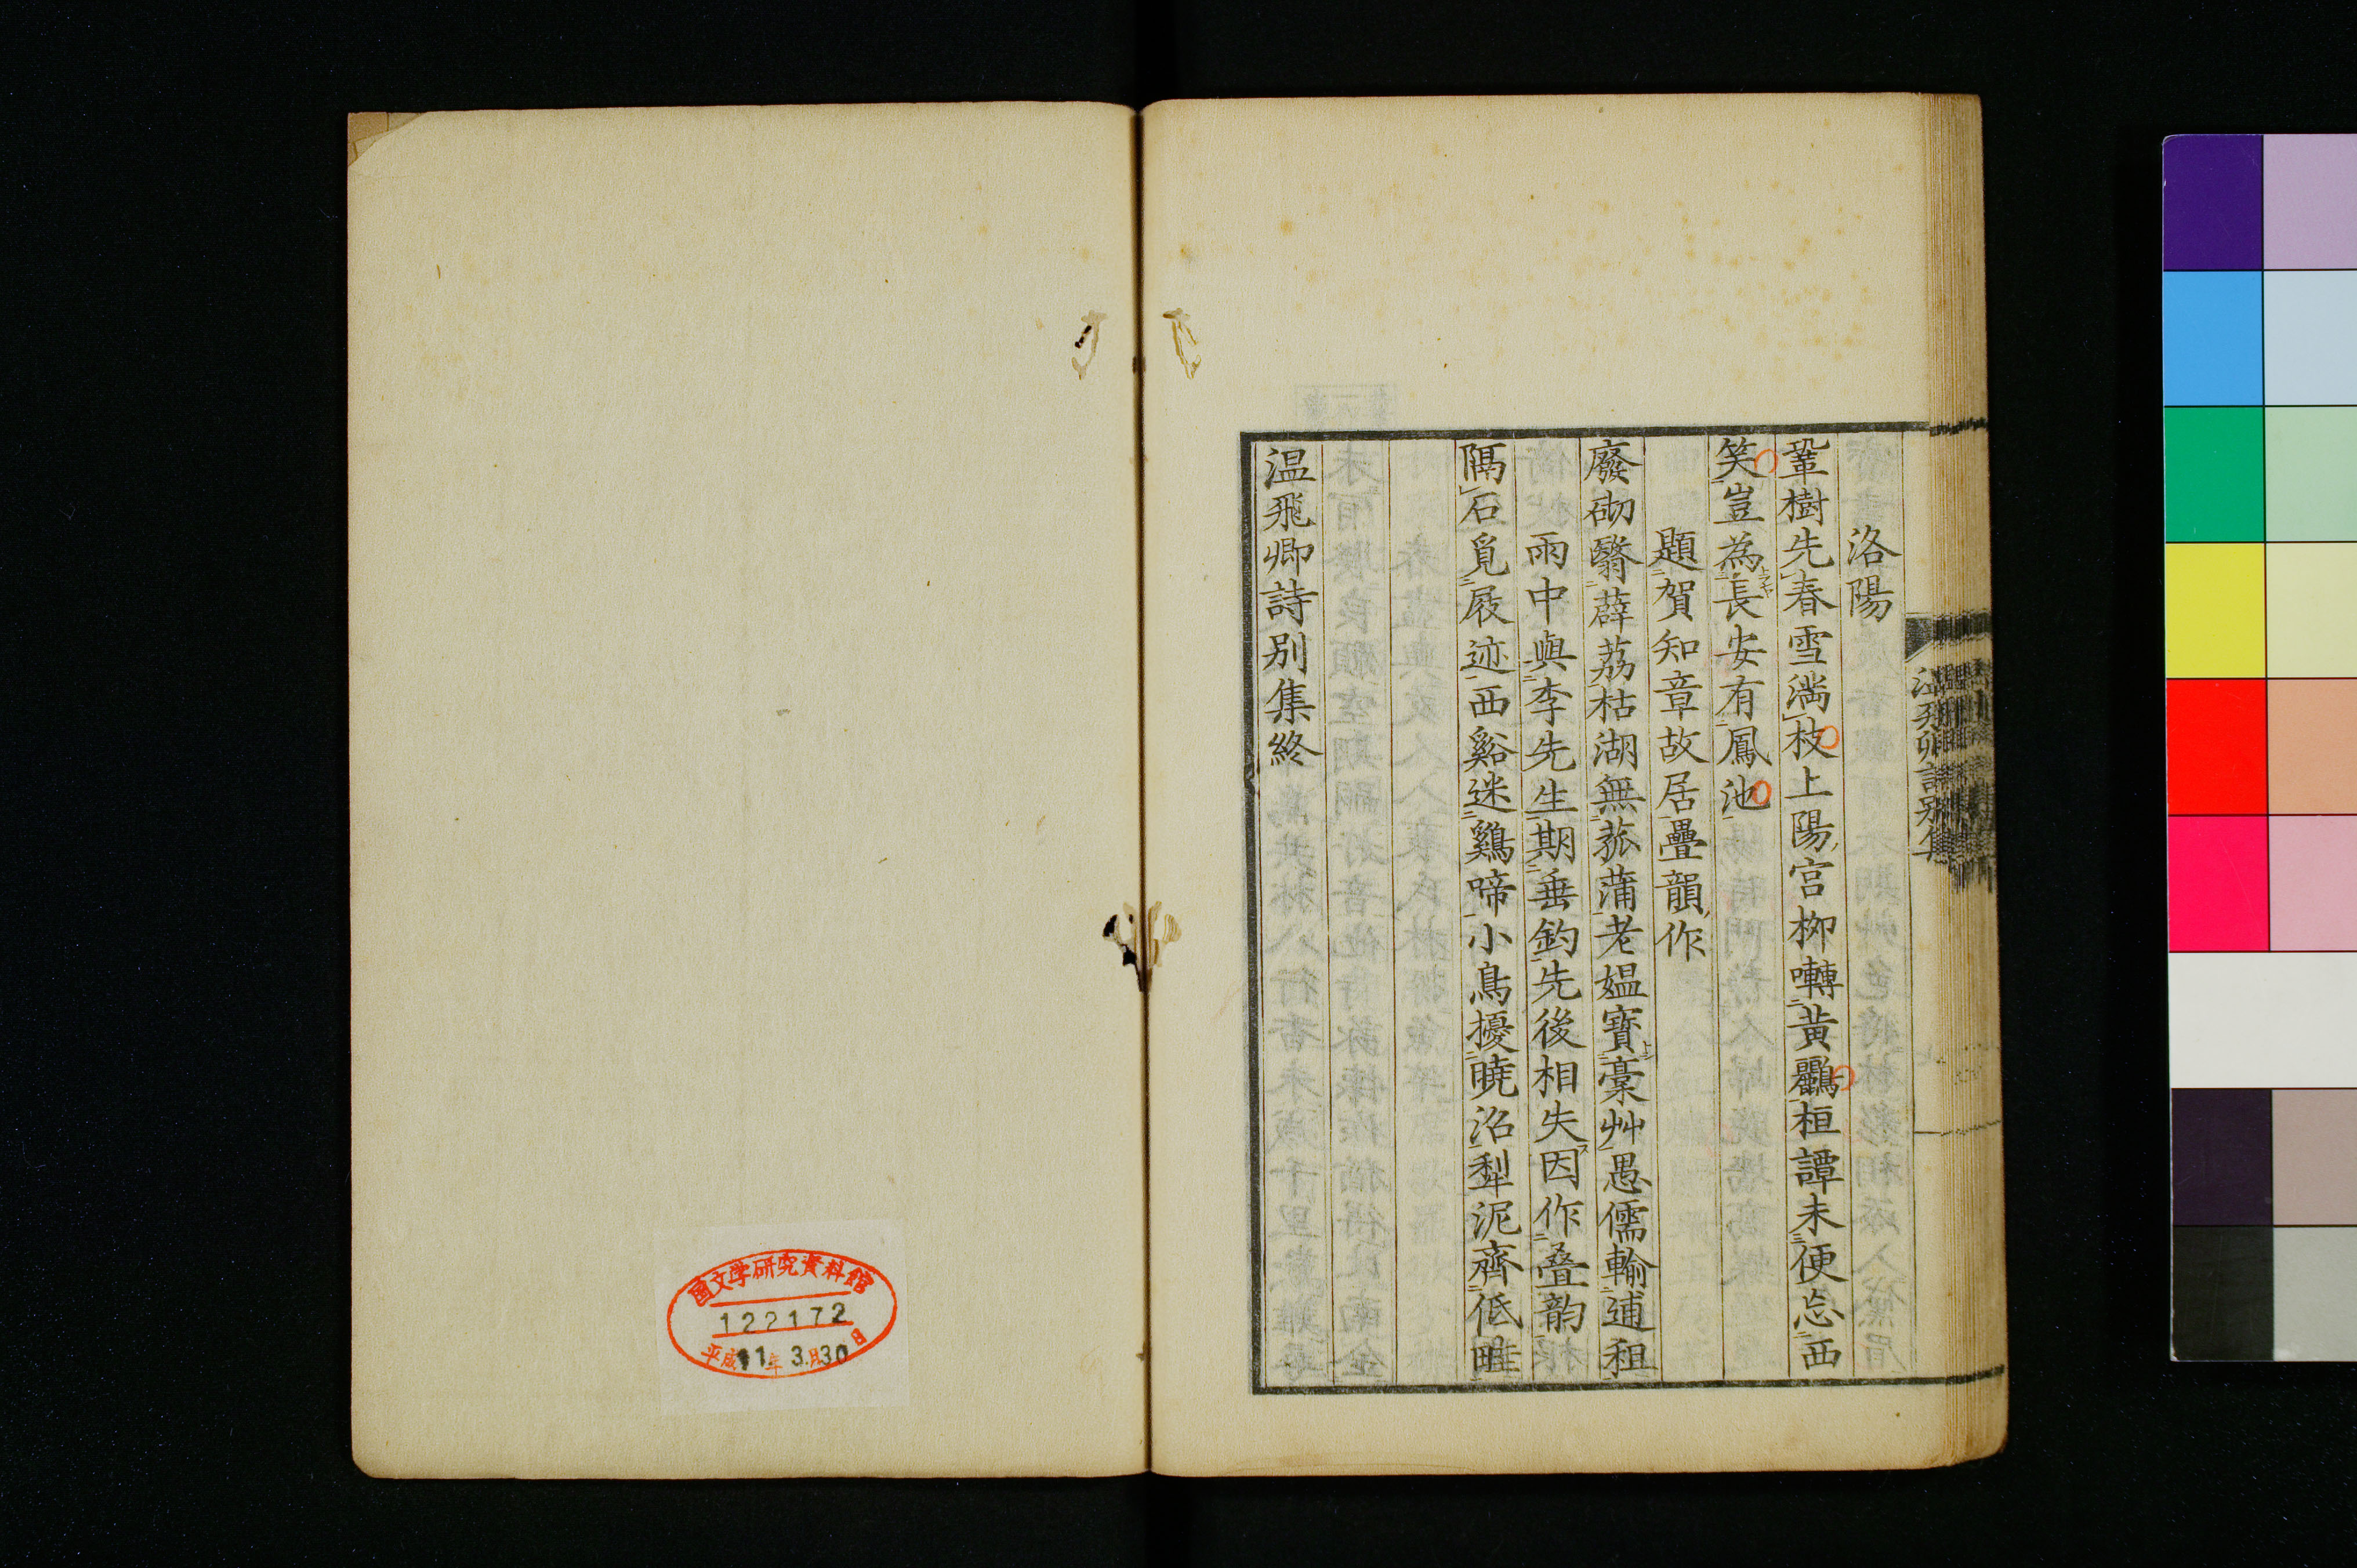 洛陽
鞏樹先春雪满枝上陽宫柳囀黄鸝桓譚未便忘西
笑豈為長安有鳳池
題賀知章故居疊韻作
廢砌翳薜荔枯湖無菰蒲老媪寳藁艸愚儒輸逋租
雨中與李先生期垂釣先後相失因作叠韵
隔石覓屐迹西谿迷鷄啼小鳥擾曉沼犁泥齊低畦
温飛卿詩别集終
国文学研究資料館
122172
平成11年3月30日